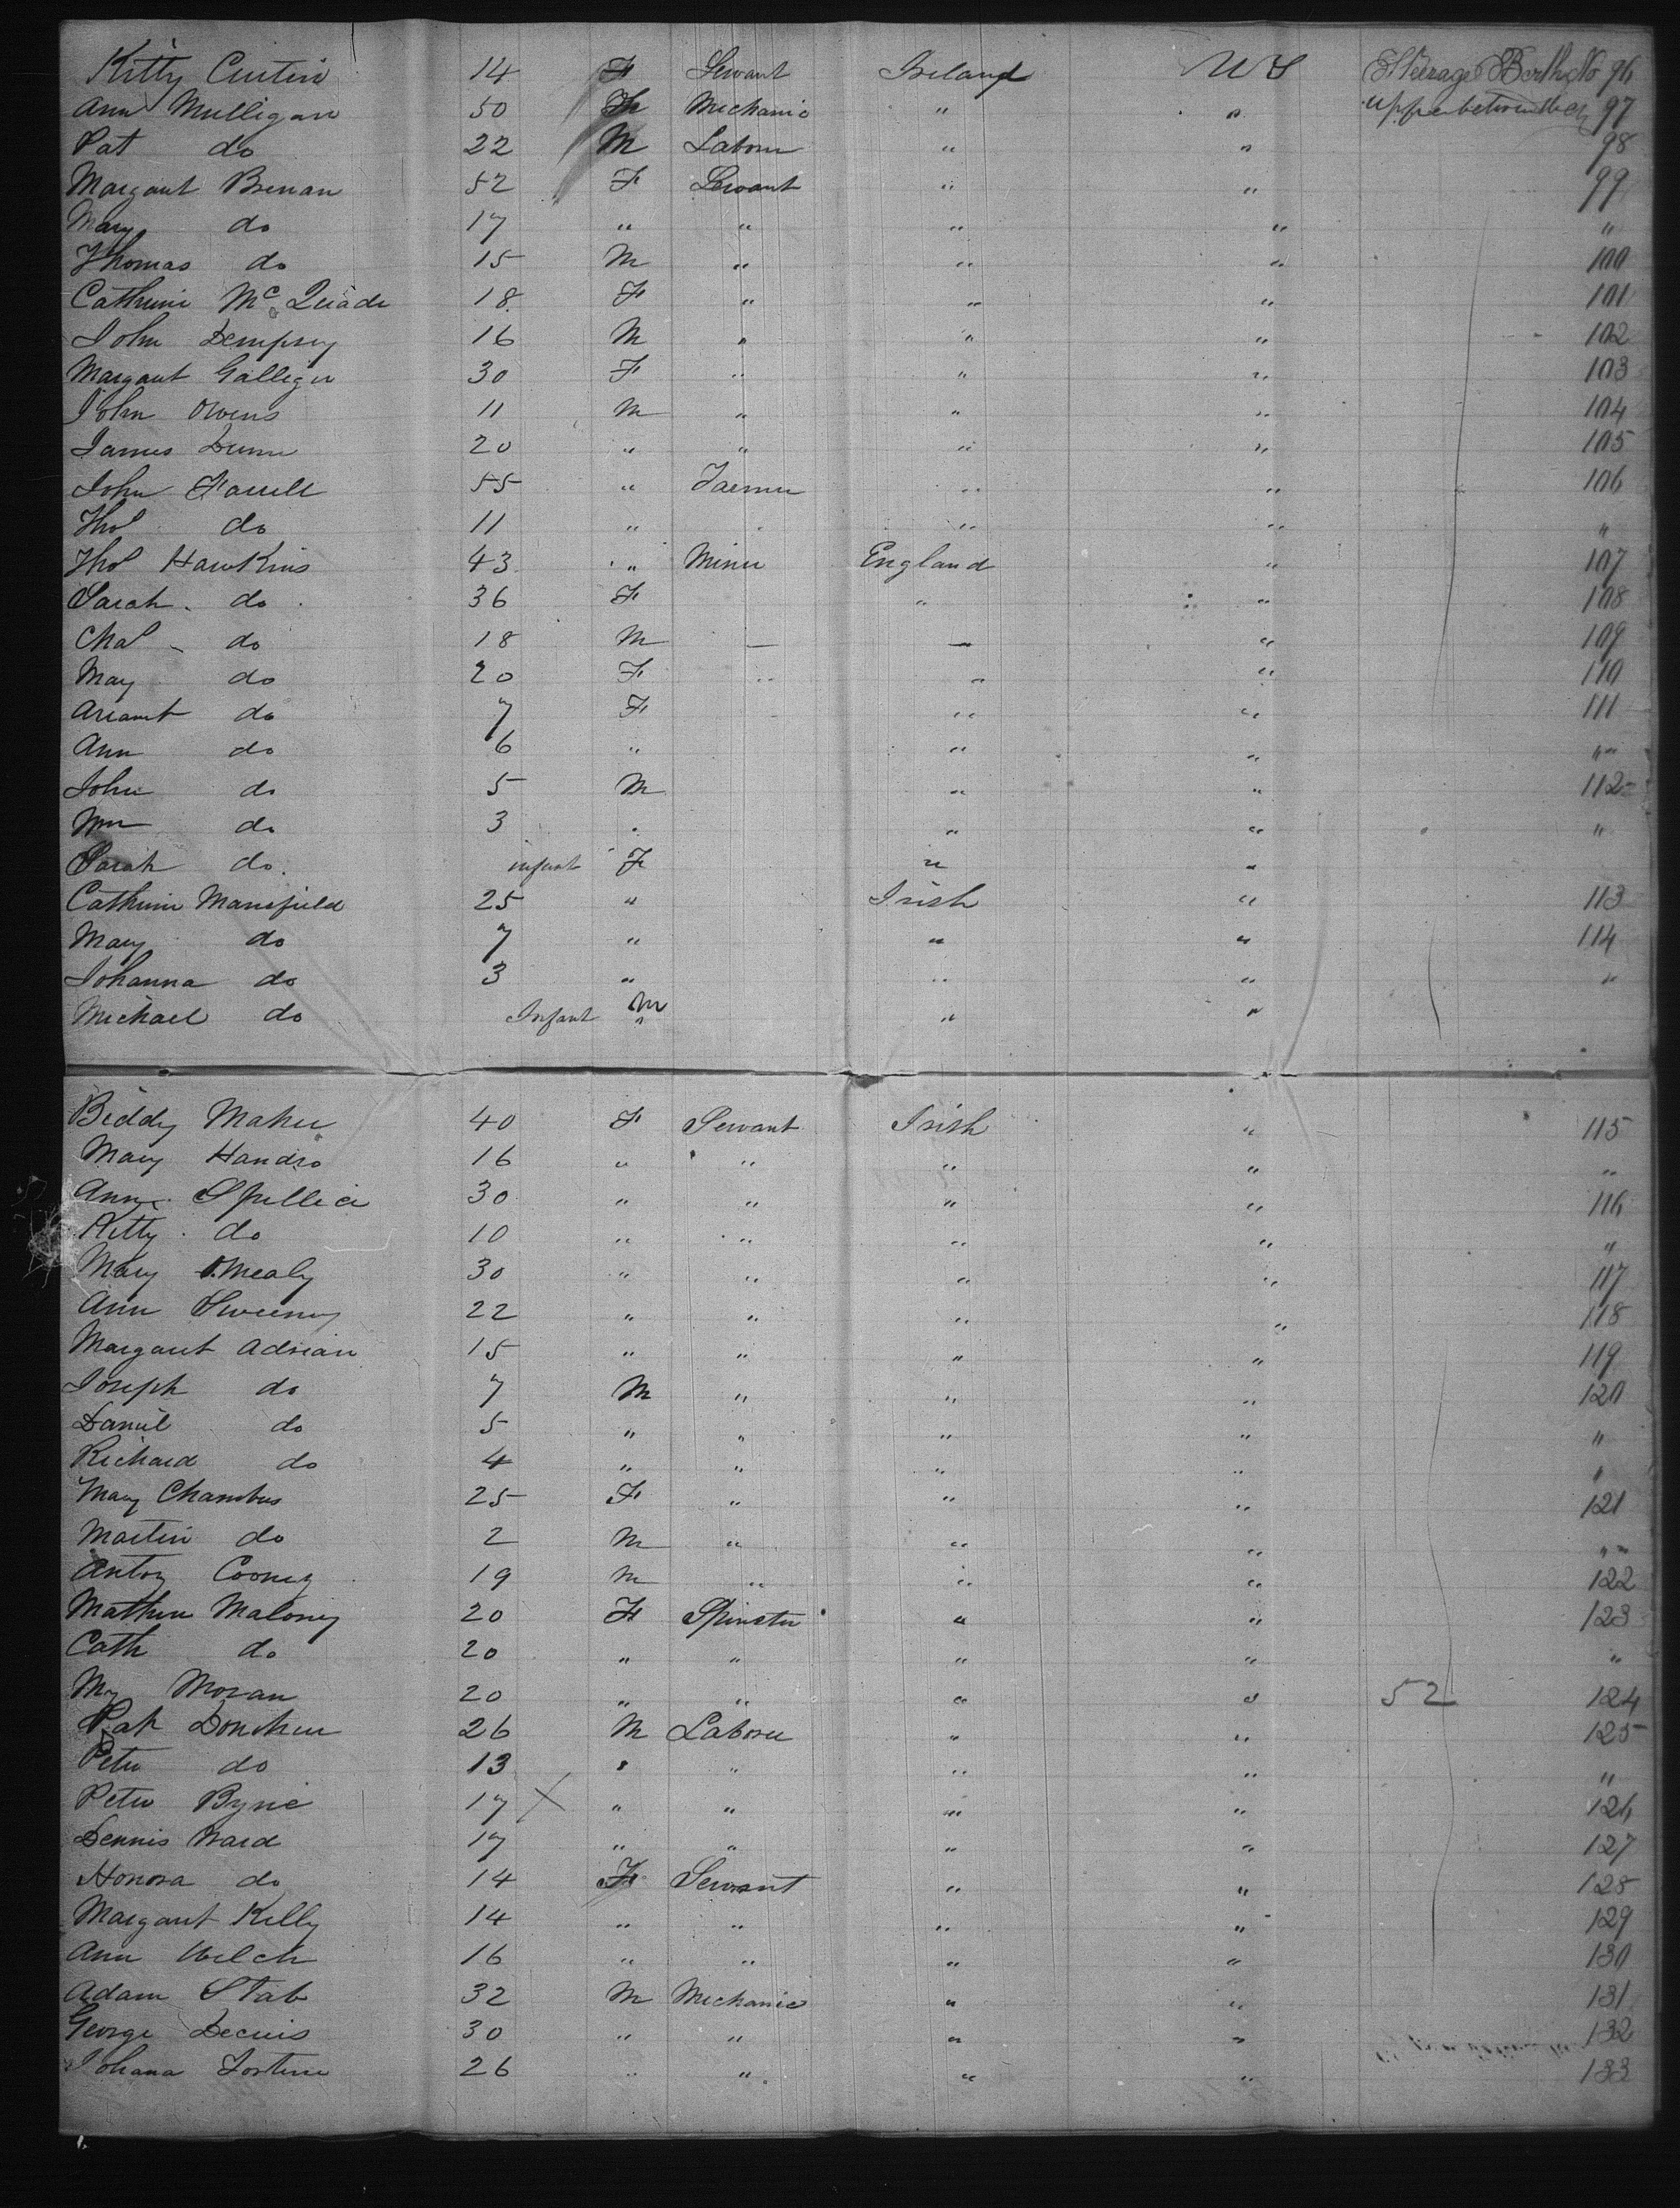 Kitty Curtin 14 F Servant Ireland US Steerage Berth No 96
Ann Mulligan 50 Mechanic " " Upper between deck 97
Pat do 22 M Laborer " " 98
Margaret Brenan 52 F Servant " " 99
Mary do 17 " " " " "
Thomas do 15 M " " " 100
Catherine McQuade 18 F " " " 101
John Dempsey 16 M " " " 102
Margaret Galliger 30 F " " " 103
John Owens 11 M " " " 104
James Dunn 20 " " " " 105
John Farrell 55 " Farmer " " 106
Thos do 11 " " " "
Thos Hawkins 43 " Miner England " 107
Sarah do 36 F " " 108
Chas do 18 M — " " 109
May do 20 F " " " 110
do 7 F " " 111
Ann do 6 " " " "
John do 5 M " " 112
Wm do 3 " " " "
Sarah do infant F " "
Catherine Mansfield 25 " Irish " 113
Mary do 7 " " " 114
Johanna do 3 " " " "
Michael do Infant M " "
Biddy Maher 40 F Servant Irish " 115
Mary 16 " " " " "
Ann 30 " " " " 116
Kitty do 10 " " " " "
Mary OMealy 30 " " " " 117
Ann Sweeney 22 " " " " 118
Margaret Adrian 15 " " " " 119
Joseph do 7 M " " " 120
Daniel do 5 " " " " "
Richard do 4 " " " " "
Mary Chambers 25 F " " " 121
Martin do 2 M " " " "
Antoy Cooney 19 M " " " 122
Mathew Maloney 20 F Spinster " " 123
Cath do 20 " " " " "
My Moran 20 " " " " 52 124
Pat 26 M Laborer " " 125
Peter do 13 " " " " "
Peter Byrne 17 X " " " " 126
Dennis Ward 17 " " " " 127
Honora do 14 F Servant " " 128
Margaret Kelly 14 " " " " 129
Ann Welch 16 " " " " 130
Adam Stab 32 M Mechanic " " 131
George 30 " " " " 132
Johana 26 " " " " 133